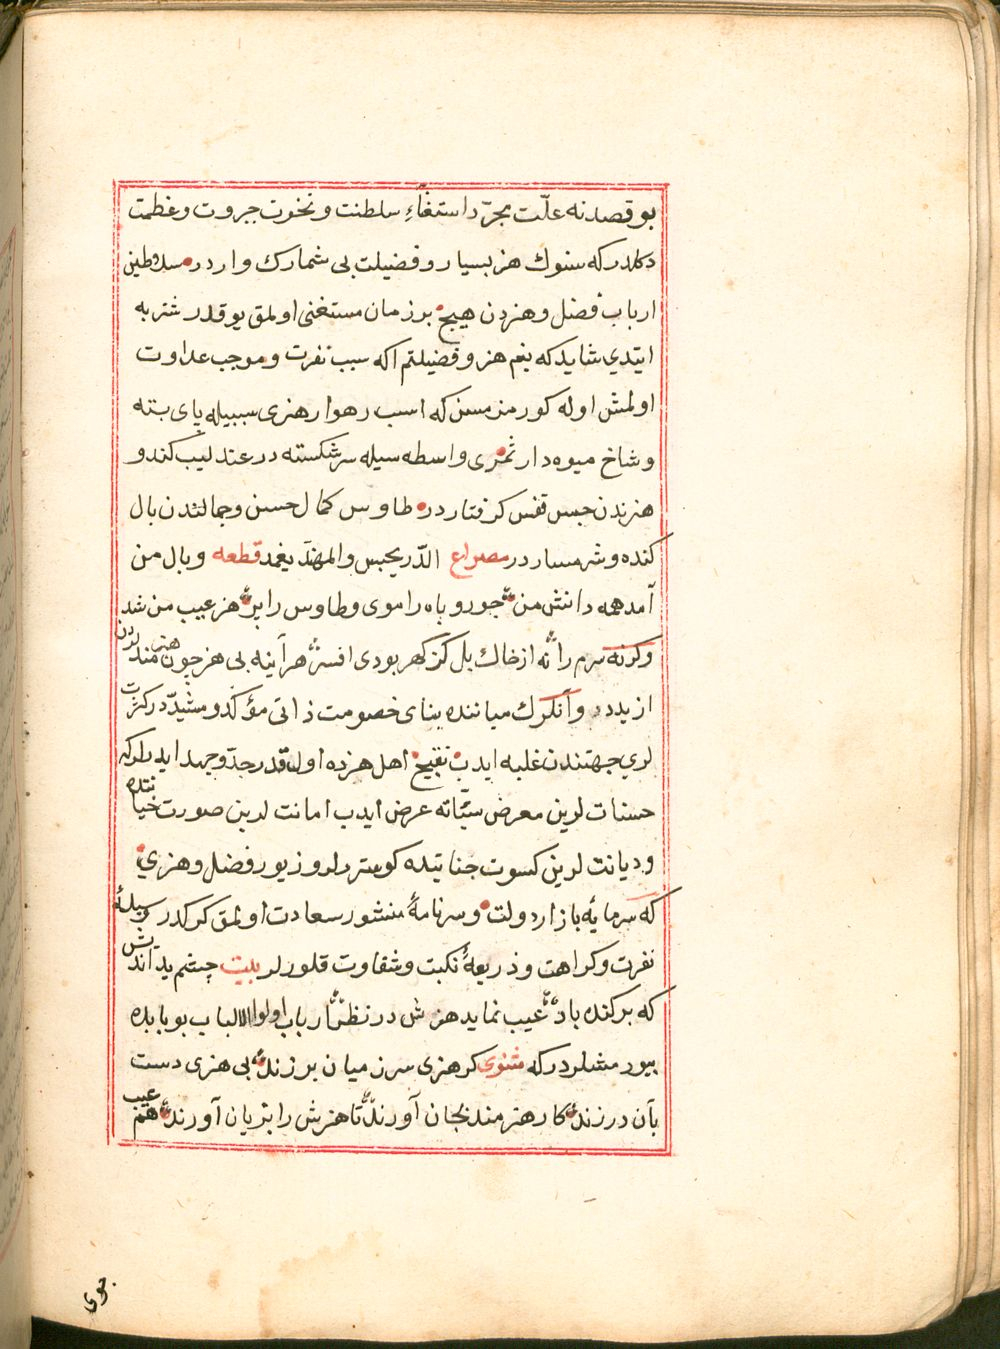 بو قصدنه علّت مجرّد استغناءِ سلطنت و نخوت جبروت و عظمت
دکلدر که سنوك هنر بسیار و فضیلت بی شمارك واردر سلاطین
ارباب فضل و هنردن هیچ برزمان مستغنی اولمق یوقدر شتربه
ایتدی شاید که بنم هنر و فضیلتم اکه سبب نفرت و موجب عداوت
اولمش اوله کورمزمسن که اسب رهوار هنری سببیله پای بسته
و شاخ میوه دار ثمری واسطه سیله سرشکسته در عندلیب کندو
هنرندن حبس قفس گرفتاردر طاوس کمال حسن و جمالندن بال
کنده و شرمساردر مصراع الدّر یحبس والمهنّد یغمد قطعه وبال من
آمد همه دانش من چو روباه را موی و طاوس را پر هنر عیب من شد
وکرنه سرم را نه از خاك بل کز کهر بودی افسر هرآینه بی هنر چون هنرمندلردن
ازیددر و آنلرك میاننده بنای خصومت ذاتی مؤکّد و مشیّددر کثرت
لری جهتندن غلبه ایدب تقبیح اهل هنرده اولقدر جدّ و جهد ایدرلرکه
حسنات لرین معرض سیّاٰته عرض ایدب امانت لرین صورت خیانتده
و دیانت لرین کسوت جنایتده کوستردلر و زیور فضل و هنری
که سرمایهٔ بازار دولت و سرنامهٔ منشور سعادت اولمق کرکدر وسیلهٔ
نفرت و کراهت و ذریعهٔ نکبت و شقاوت قلورلر بیت چشم بداندیش
که برکنده باد عیب نماید هنرش در نظر ارباب اولوا الالباب بو بابده
بیورمشلردر که مثنوی کر هنری سر ز میان برزند بی هنری دست
بآن درزند کار هنرمند بجان آورند تا هنرش را بزبان آورند هنم عیب
جوی